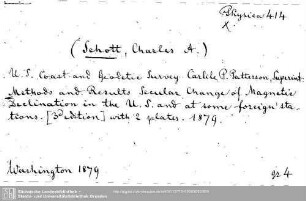 Physica 414
X
(Schott, Charles A.)
U. S. Coast and Geodetic Survey Carlile P. Patterson, Superint.
Methods and Results Secular Change of Magnetic
Declination in the U. S. and at some foreign sta-
tions. [3d edition] with 2 plates. 1879.
Washington 1879
gr. 4